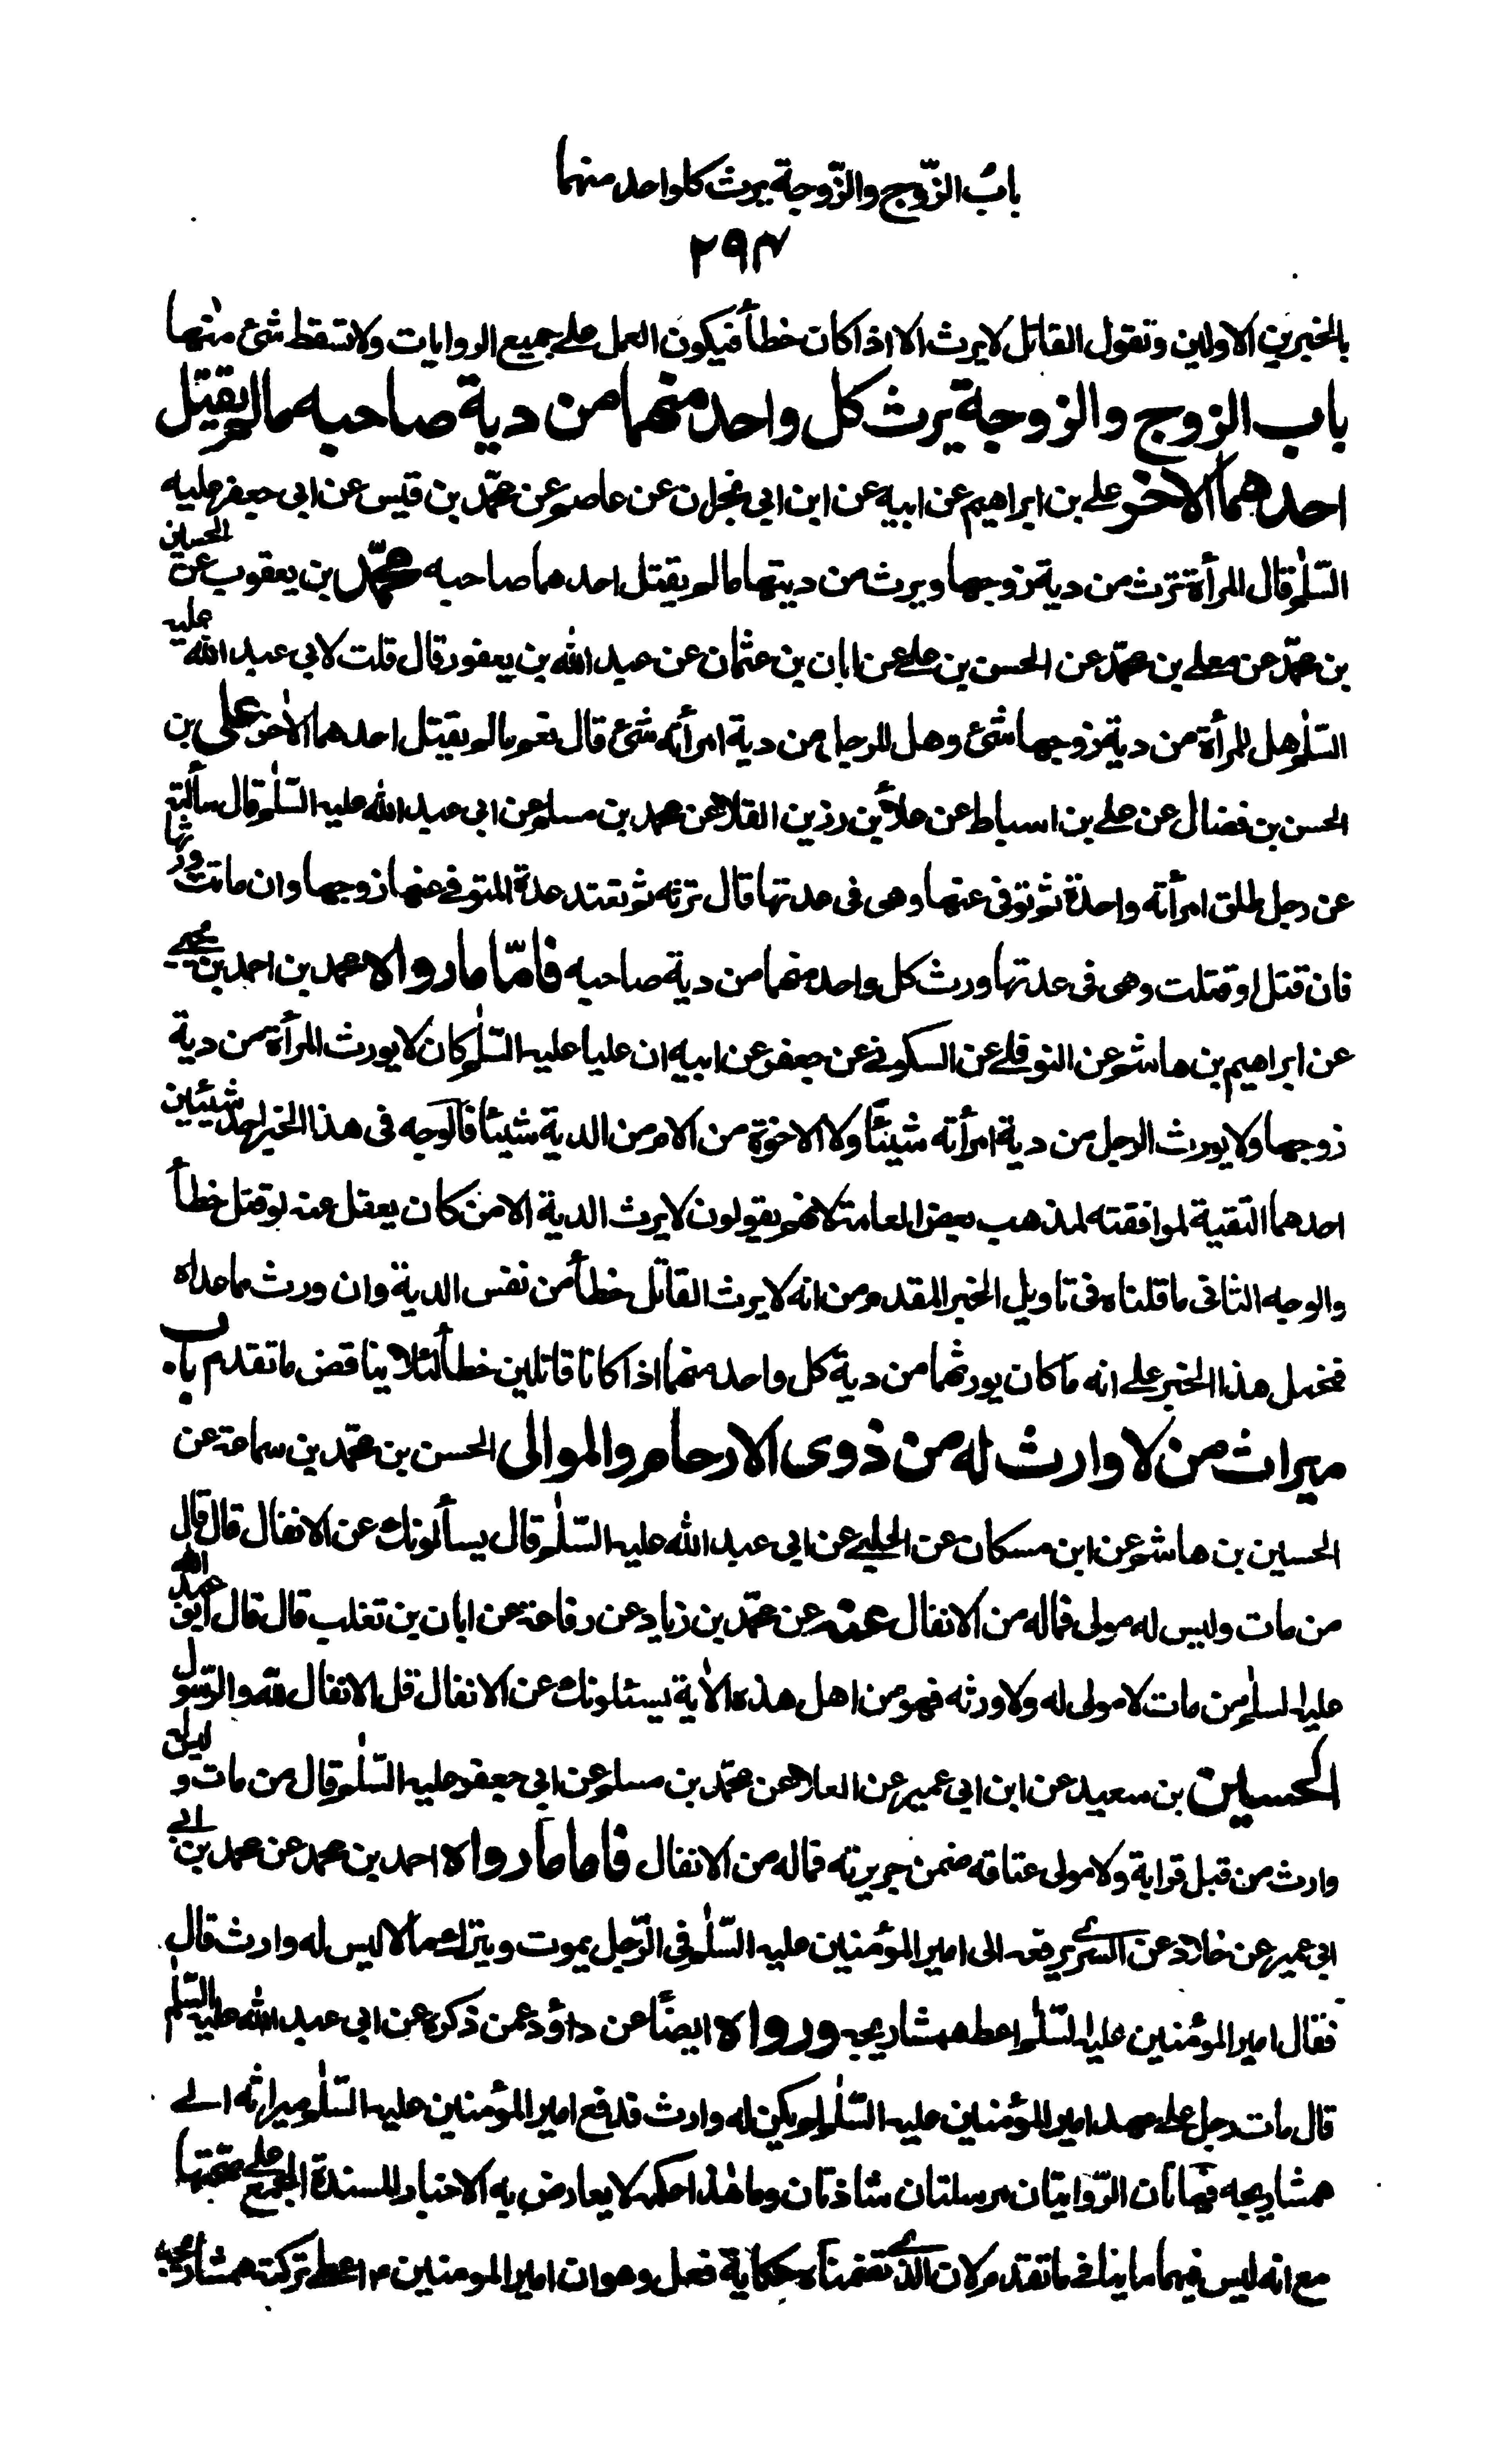 بابُ الزّوج والزّوجة يرث كلواحد منهما
٢٩٤
بالخبرين الاولين ونقول القاتل لايرث الا اذا كان خطأ فيكون العمل على جميع الروايات ولا تسقط شئ منها
باب الزوج والزوجة يرث كل واحد منهما من دية صاحبه ما لم يقتل
احدهما الاخر على بن ابراهيم عن ابيه عن ابن ابى نجران عن عاصم عن محمّد بن قيس عن ابى جعفر عليه
السّلم قال المرأة ترث من دية زوجها ويرث من ديتها ما لم يقتل احدهما صاحبه محمّد بن يعقوب عن الحسين
بن محمّد عن معلى بن محمّد عن الحسن بن على عن ابان بن عثمان عن عبد الله بن يعفور قال قلت لابى عبد الله عليه
السّلم هل للمرأة من دية زوجها شئ وهل للرجل من دية امرأته شئ قال نعم ما لم يقتل احدهما الاخر على بن
الحسن بن فضال عن على بن اسباط عن علاء بن رزين القلا عن محمد بن مسلم عن ابى عبد الله عليه السّلم قال سألته
عن رجل طلق امرأته واحدة ثم توفى عنها وهى فى عدتها قال ترثه ثم تعتد عدة المتوفى عنها زوجها وان ماتت ورثها
فان قتل او قتلت وهى فى عدتها ورث كل واحد منهما من دية صاحبه فامّا ما رواه محمد بن احمد بن يحيى
عن ابراهيم بن هاشم عن النوفلى عن السكونى عن جعفر عن ابيه ان عليا عليه السّلم كان لا يورث المرأة من دية
زوجها ولا يورث الرجل من دية امرأته شيئًا ولا الاخوة من الام من الدية شيئا فالوجه فى هذا الخبر احد شيئين
احدهما التقية لموافقته لمذهب بعض العامة لانهم يقولون لايرث الدية الا من كان يعقل عنه لو قتل خطأ
والوجه الثانى ما قلناه فى تاويل الخبر المقدم من انه لايرث القاتل خطأ من نفس الدية وان ورث ما عداه
فنحمل هذا الخبر على انه ما كان يورثهما من دية كل واحد منهما اذا كانا قاتلين خطأ لئلا يناقض ما تقدم باب
ميراث من لا وارث له من ذوى الارحام والموالى الحسن بن محمّد بن سماعة عن
الحسين بن هاشم عن ابن مسكان عن الحلبى عن ابى عبد الله عليه السّلم قال يسألونك عن الانفال قال قال
من مات وليس له مولى فماله من الانفال عنه عن محمّد بن زياد عن رفاعة عن ابان بن تغلب قال قال ابو عبد الله
عليه السلم من مات لا مولى له ولا ورثه فهو من اهل هذه الاية يسئلونك عن الانفال قل الانفال لله والرّسول
الحسين بن سعيد عن ابن ابى عمير عن العلا عن محمّد بن مسلم عن ابى جعفر عليه السّلم قال من مات و ليس له
وارث من قبل قرابة ولا مولى عتاقه ضمن جريرته فماله من الانفال فاما ما رواه احمد بن محمد عن محمد بن ابى
ابى عمير عن خلاد عن السرى يرفعه الى امير المؤمنين عليه السّلم فى الرّجل يموت ويترك مالا ليس له وارث قال
فقال امير المؤمنين عليه السّلم اعط همشاريجه ورواه ايضًا عن داؤد عمن ذكره عن ابى عبد الله عليه السّلم
قال مات رجل على عهد امير المؤمنين عليه السّلم لم يكن له وارث فدفع امير المؤمنين عليه السّلم ميراثه الى
همشاريجه فهاتان الرّوايتان مرسلتان شاذتان وما هذا حكمه لا يعارض به الاخبار المسندة المجمع على صحتها
مع انه ليس فيهما ما ينافى ما تقدم لان الذى تضمناه حكاية فعل وهو ان امير المومنين ۴ اعطى تركته همشاريجه